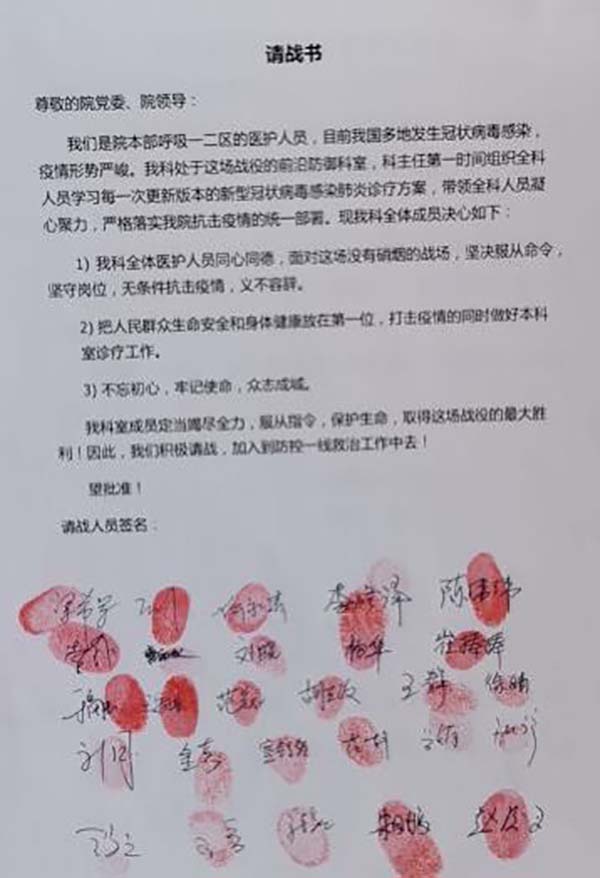 请战书
尊敬的院党委、院领导：
我们是院本部呼吸一二区的医护人员，目前我国多地发生冠状病毒感染，
疫情形势严峻。我科处于这场战役的前沿防御科室，科主任第一时间组织全科
人员学习每一次更新版本的新型冠状病毒感染肺炎诊疗方案，带领全科人员凝
心聚力，严格落实我院抗击疫情的统一部署。现我科全体成员决心如下：
1) 我科全体医护人员同心同德，面对这场没有硝烟的战场，坚决服从命令，
坚守岗位，无条件抗击疫情，义不容辞。
2) 把人民群众生命安全和身体健康放在第一位，打击疫情的同时做好本科
室诊疗工作。
3) 不忘初心，牢记使命，众志成城。
我科室成员定当竭尽全力，服从指令，保护生命，取得这场战役的最大胜
利！因此，我们积极请战，加入到防控一线救治工作中去！
望批准！
请战人员签名：
杨华